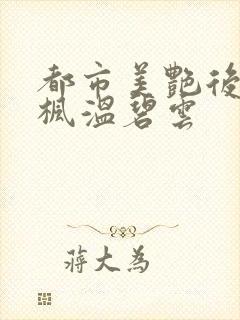 都市美艷後
楓溫碧雲
蔣大為